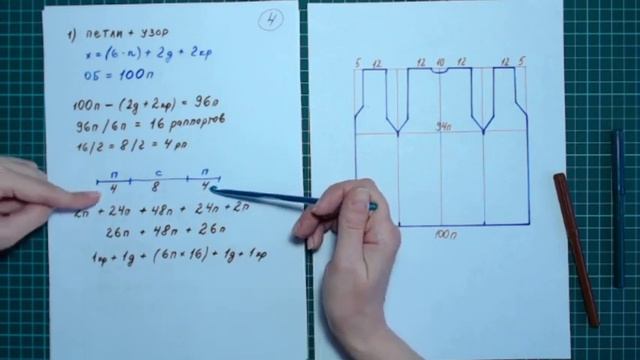 4
1) ПЕТЛИ + УЗОР
x = (6·n) + 2д + 2кр
ОБ = 100п
100п – (2д + 2кр) = 96п
96п / 6п = 16 раппортов
16/2 = 8/2 = 4 рп
п с п
4 8 4
2п + 24п + 48п + 24п + 2п
26п + 48п + 26п
1кр + 1д + (6п × 16) + 1д + 1кр
5 12 12 10 12 12 5
94п
100п